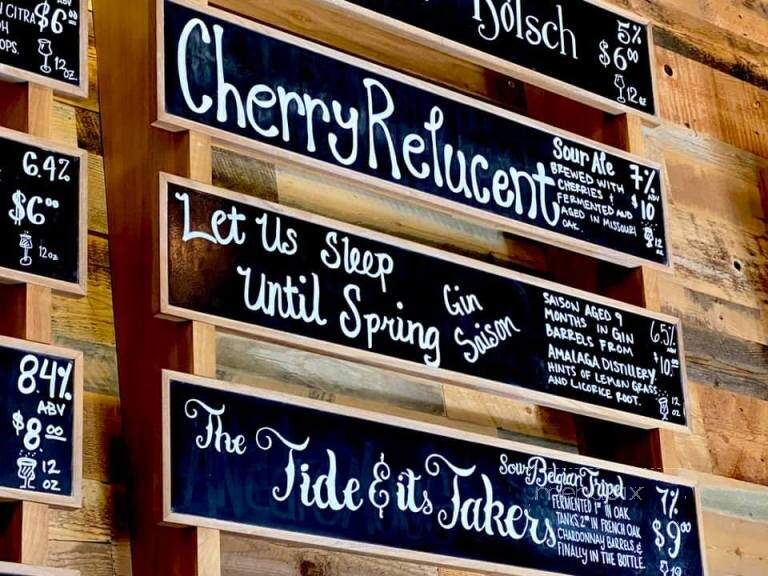 CITRA $6⁰⁰
OPS.
12 oz.
6.4%
$6⁰⁰
12oz
8.4%
ABV
$8.⁰⁰
12
OZ
Kölsch
5%
$6⁰⁰
12oz
Cherry Relucent
Sour Ale
BREWED WITH
CHERRIES &
FERMENTED AND
AGED IN MISSOURI
OAK.
7%
ABV
$10
12
oz
Let Us Sleep
Until Spring
Gin
Saison
SAISON AGED 9
MONTHS IN GIN
BARRELS FROM
AMALAGA DISTILLERY.
HINTS OF LEMON GRASS
AND LICORICE ROOT.
6.5%
ABV
$10.⁰⁰
12
OZ
The Tide & its Takers
Sour Belgian Tripel
FERMENTED 1ˢᵗ IN OAK
TANKS, 2ⁿᵈ IN FRENCH OAK
CHARDONNAY BARRELS, &
FINALLY IN THE BOTTLE.
7%
$9⁰⁰
12